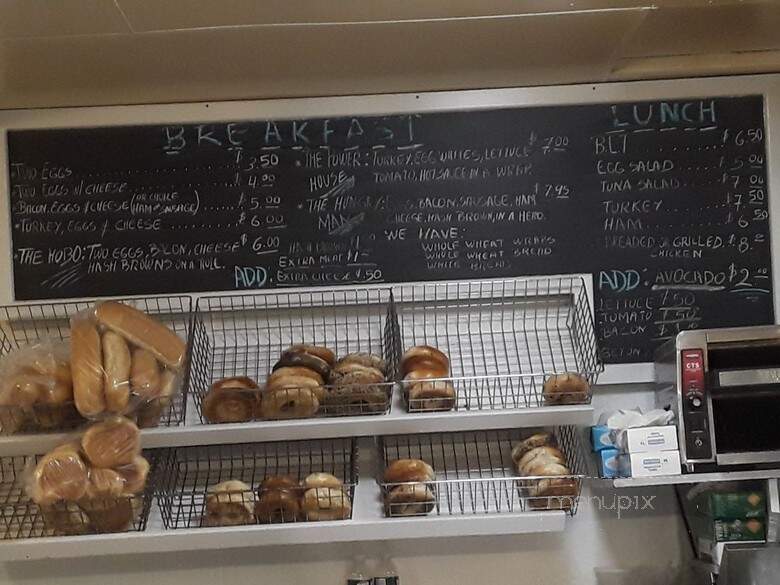 BREAKFAST
TWO EGGS $3.50
TWO EGGS W/CHEESE 4.00
BACON, EGGS & CHEESE (OR CHOICE HAM & SAUSAGE) 5.00
TURKEY, EGGS & CHEESE $6.00
THE HOBO: TWO EGGS, BACON, CHEESE $6.00
HASH BROWNS ON A ROLL.
THE POWER HOUSE: TURKEY, EGG WHITES, LETTUCE $7.00
TOMATO, HOT SAUCE IN A WRAP.
THE HUNGRY MAN: BACON, SAUSAGE, HAM $7.95
CHEESE, HASH BROWN, IN A HERO.
WE HAVE:
WHOLE WHEAT WRAPS
WHOLE WHEAT BREAD
WHITE BREAD
ADD:
EXTRA MEAT $1
EXTRA CHEESE $.50
LUNCH
BLT $6.50
EGG SALAD 5.00
TUNA SALAD 7.00
TURKEY 7.50
HAM 6.50
BREADED OR GRILLED CHICKEN $8.
ADD: AVOCADO $2.00
LETTUCE .50
TOMATO .50
BACON
CTS
menupix